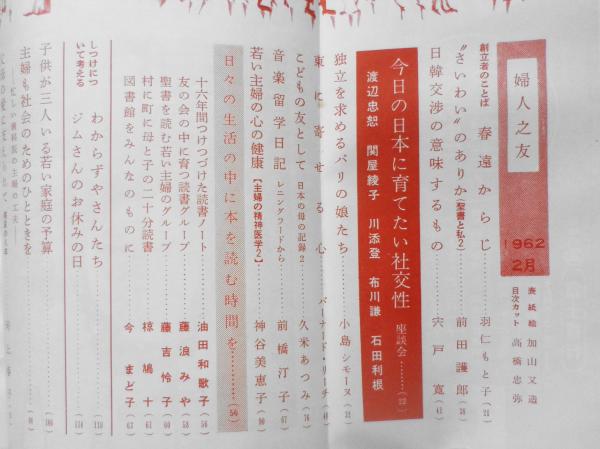 婦人之友
1962
2月
表紙絵 加山又造
目次カット 高橋忠弥
創立者のことば 春遠からじ……羽仁もと子(21)
“さいわい”のありか(聖書と私2)……前田護郎(38)
日韓交渉の意味するもの……宍戸寛(41)
今日の日本に育てたい社交性 座談会……(22)
渡辺忠恕 関屋綾子 川添登 布川謙 石田利根
独立を求めるパリの娘たち……小島シモーヌ
東に寄せる心……バーナード・リーチ
こどもの友として 日本の母の記録2……久米あつみ
音楽留学日記 レニングラードから……前橋汀子(67)
若い主婦の心の健康【主婦の精神医学2】……神谷美恵子(90)
日々の生活の中に本を読む時間を……(50)
十六年間つけつづけた読書ノート……油田和歌子(56)
友の会の中に育つ読書グループ……藤浪みや(58)
聖書を読む若い主婦のグループ……藤吉怜子(60)
村に町に母と子の二十分読書……椋鳩十(61)
図書館をみんなのものに……今まど子(63)
しつけについて考える
わからずやさんたち……(110)
ジムさんのお休みの日……(114)
子供が三人いる若い家庭の予算……(100)
主婦も社会のためのひとときを